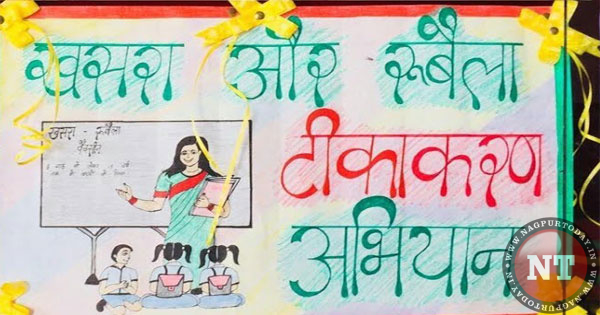 खसरा और रूबैला
टीकाकरण
अभियान
खसरा - रूबैला
WWW.NAGPURTODAY.IN
NT
WWW.NAGPURTODAY.IN